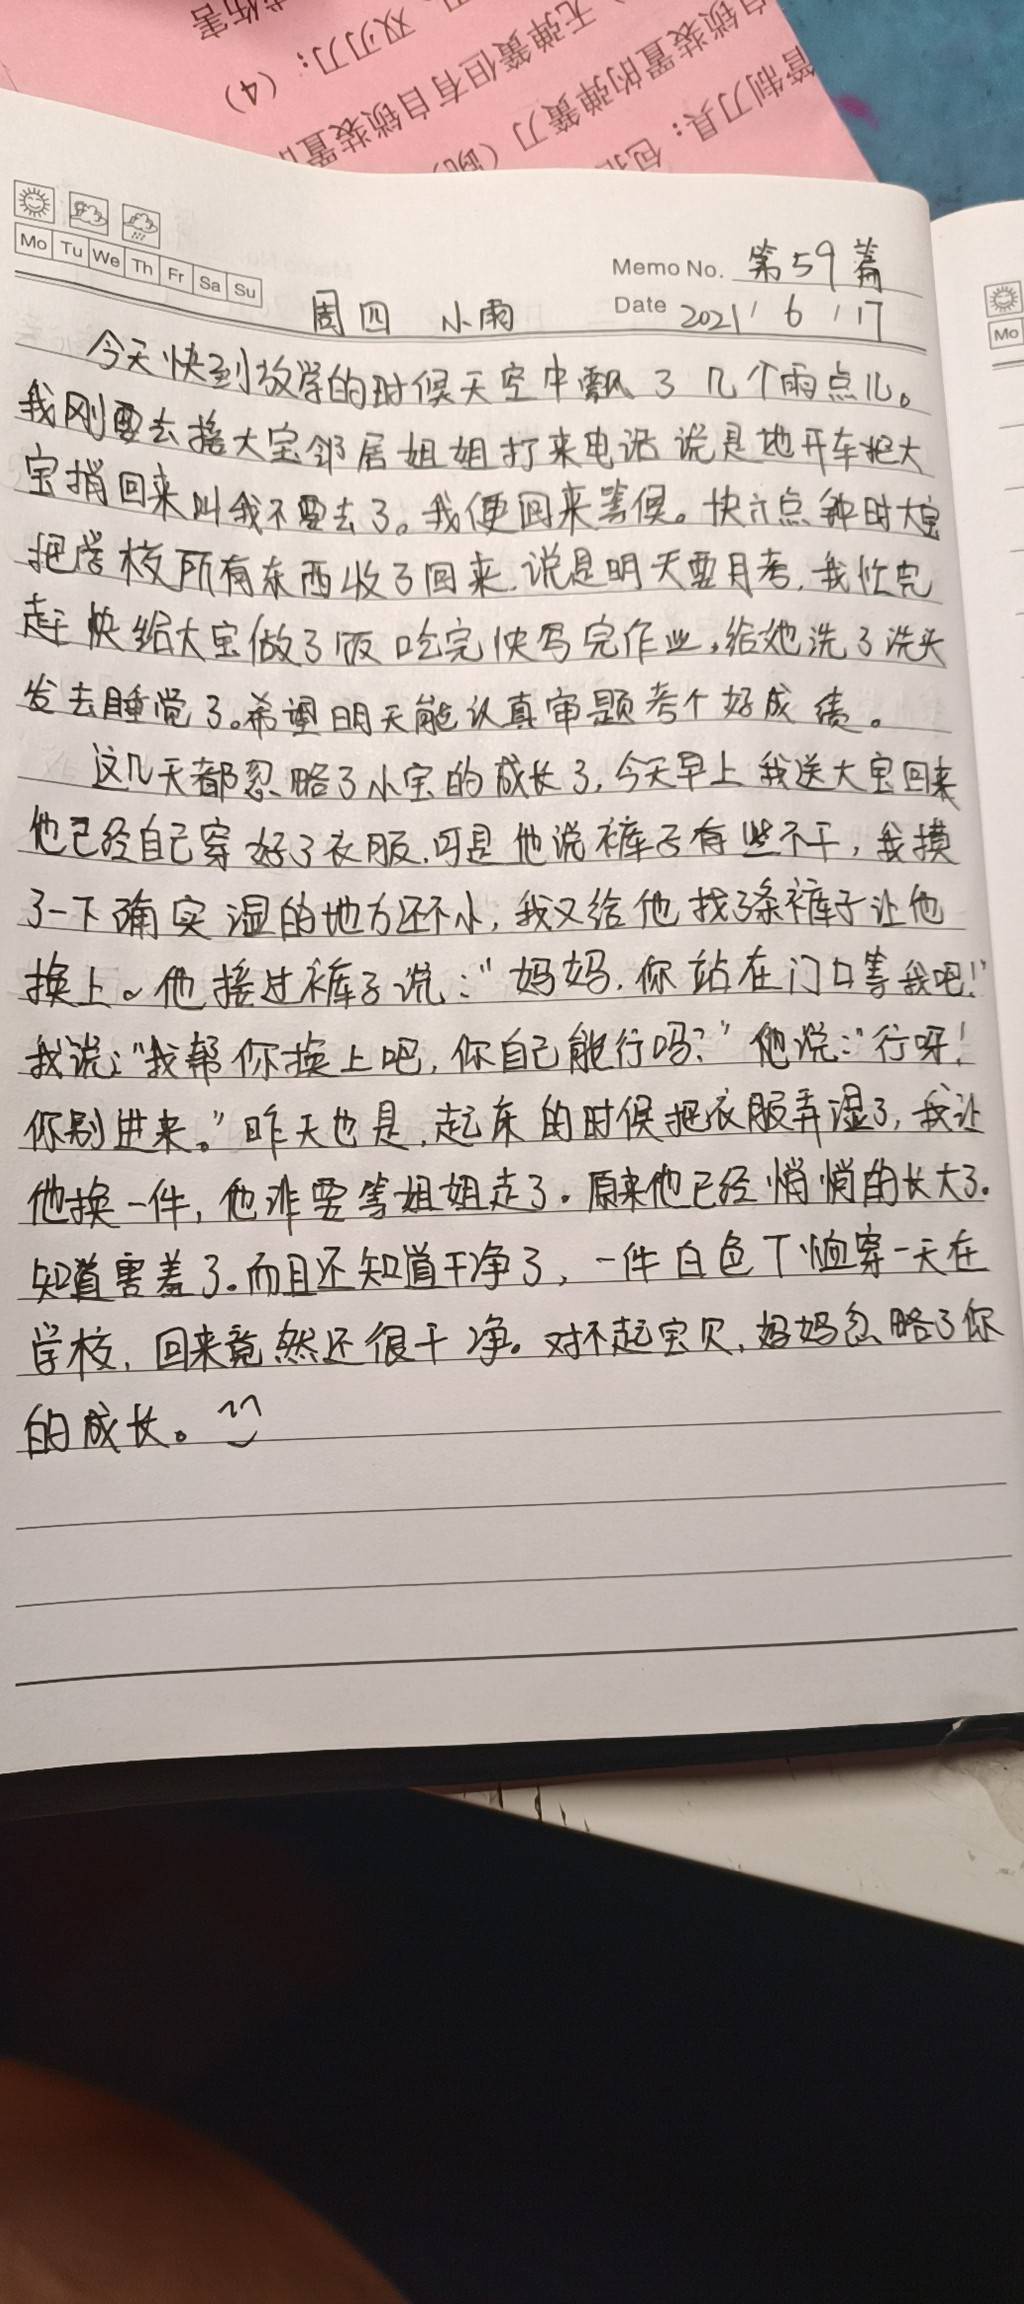 伤害
双刃刀；（4）
无弹簧但有自锁装置
自锁装置的弹簧刀
管制刀具：包
Mo Tu We Th Fr Sa Su
Memo No. 第59篇
Date 2021 / 6 / 17
周四 小雨
Mo
今天快到放学的时候天空中飘了几个雨点儿。
我刚要去接大宝邻居姐姐打来电话说是她开车把大
宝捎回来叫我不要去了。我便回来等候。快六点钟时大宝
把学校所有东西收了回来,说是明天要月考,我忙完
赶快给大宝做了饭吃完快写完作业,给她洗了洗头
发去睡觉了。希望明天能认真审题考个好成绩。
这几天都忽略了小宝的成长了,今天早上我送大宝回来
他已经自己穿好了衣服,可是他说裤子有些不干,我摸
了一下确实湿的地方还不小,我又给他找了条裤子让他
换上。他接过裤子说:“妈妈,你站在门口等我吧!”
我说:“我帮你换上吧,你自己能行吗?”他说:“行呀!
你别进来。”昨天也是,起床的时候把衣服弄湿了,我让
他换一件,他非要等姐姐走了。原来他已经悄悄的长大了.
知道害羞了.而且还知道干净了,一件白色T恤穿一天在
学校,回来竟然还很干净。对不起宝贝,妈妈忽略了你
的成长。